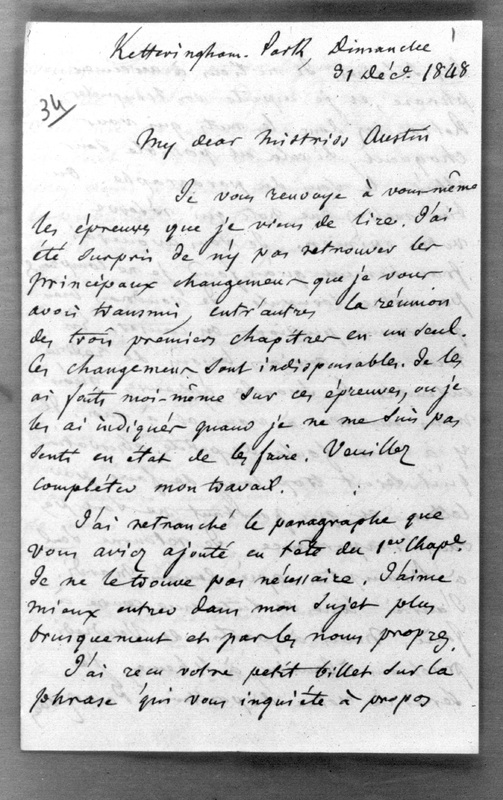 Ketteringham. Park Dimanche
31 Déc. 1848
34
My dear Mistriss Austin
Je vous renvoye à vous-même
les épreuves que je viens de lire. J'ai
été surpris de n'y pas retrouver les
principaux changemens que je vous
avois transmis, entr'autres la réunion
des trois premiers chapitres en un seul.
Ces changemens sont indispensables. Je les
ai faits moi-même sur ces épreuves, ou je
les ai indiqués quand je ne me suis pas
senti en état de les faire. Veuillez
compléter mon travail.
J'ai retranché le paragraphe que
vous aviez ajouté en tête du 1er Chap.
Je ne le trouve pas nécessaire. J'aime
mieux entrer dans mon sujet plus
brusquement et par les noms propres.
J'ai reçu votre petit billet sur la
phrase qui vous inquiéte à propos